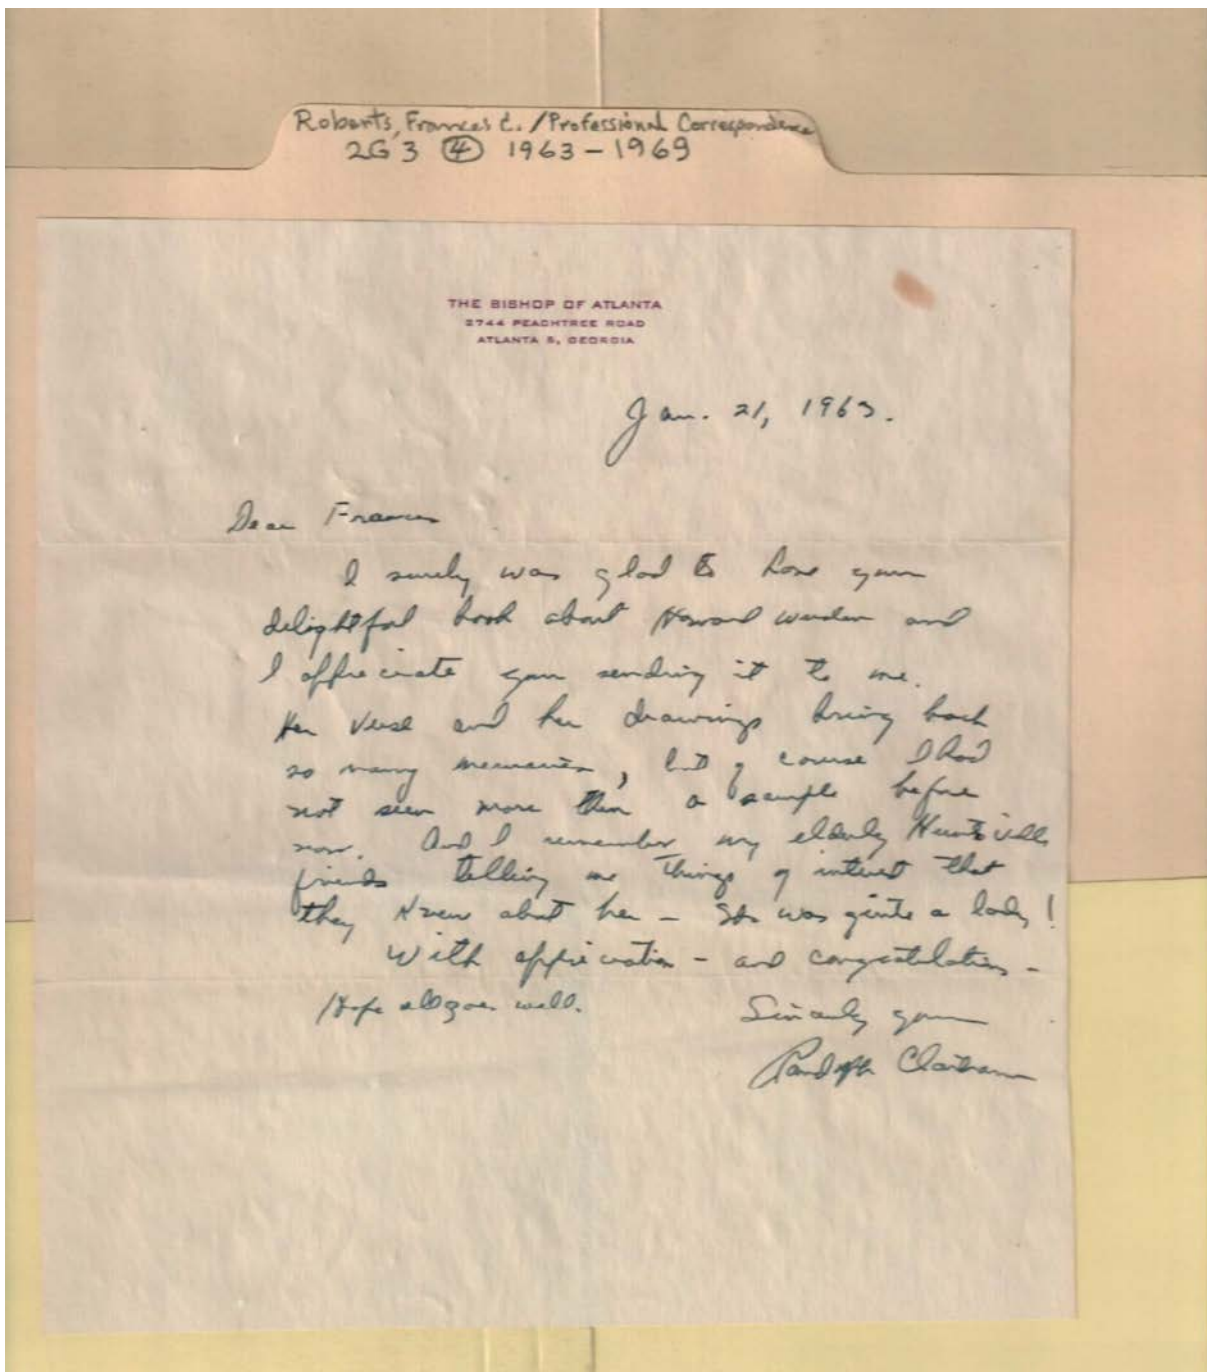 Roberts, Frances C. / Professional Correspondence
2G 3 (4) 1963-1969
THE BISHOP OF ATLANTA
2744 PEACHTREE ROAD
ATLANTA 5, GEORGIA
Jan. 21, 1963.
Dear Frances
I surely was glad to have your
delightful book about Howard Weeden and
I appreciate your sending it to me.
Her verse and her drawings bring back
so many memories, but of course I had
not seen more than a sample before
now. And I remember my elderly Huntsville
friends telling me things of interest that
they knew about her - She was quite a lady!
With appreciation - and congratulations -
Hope all goes well.
Sincerely yours
Randolph Claiborne